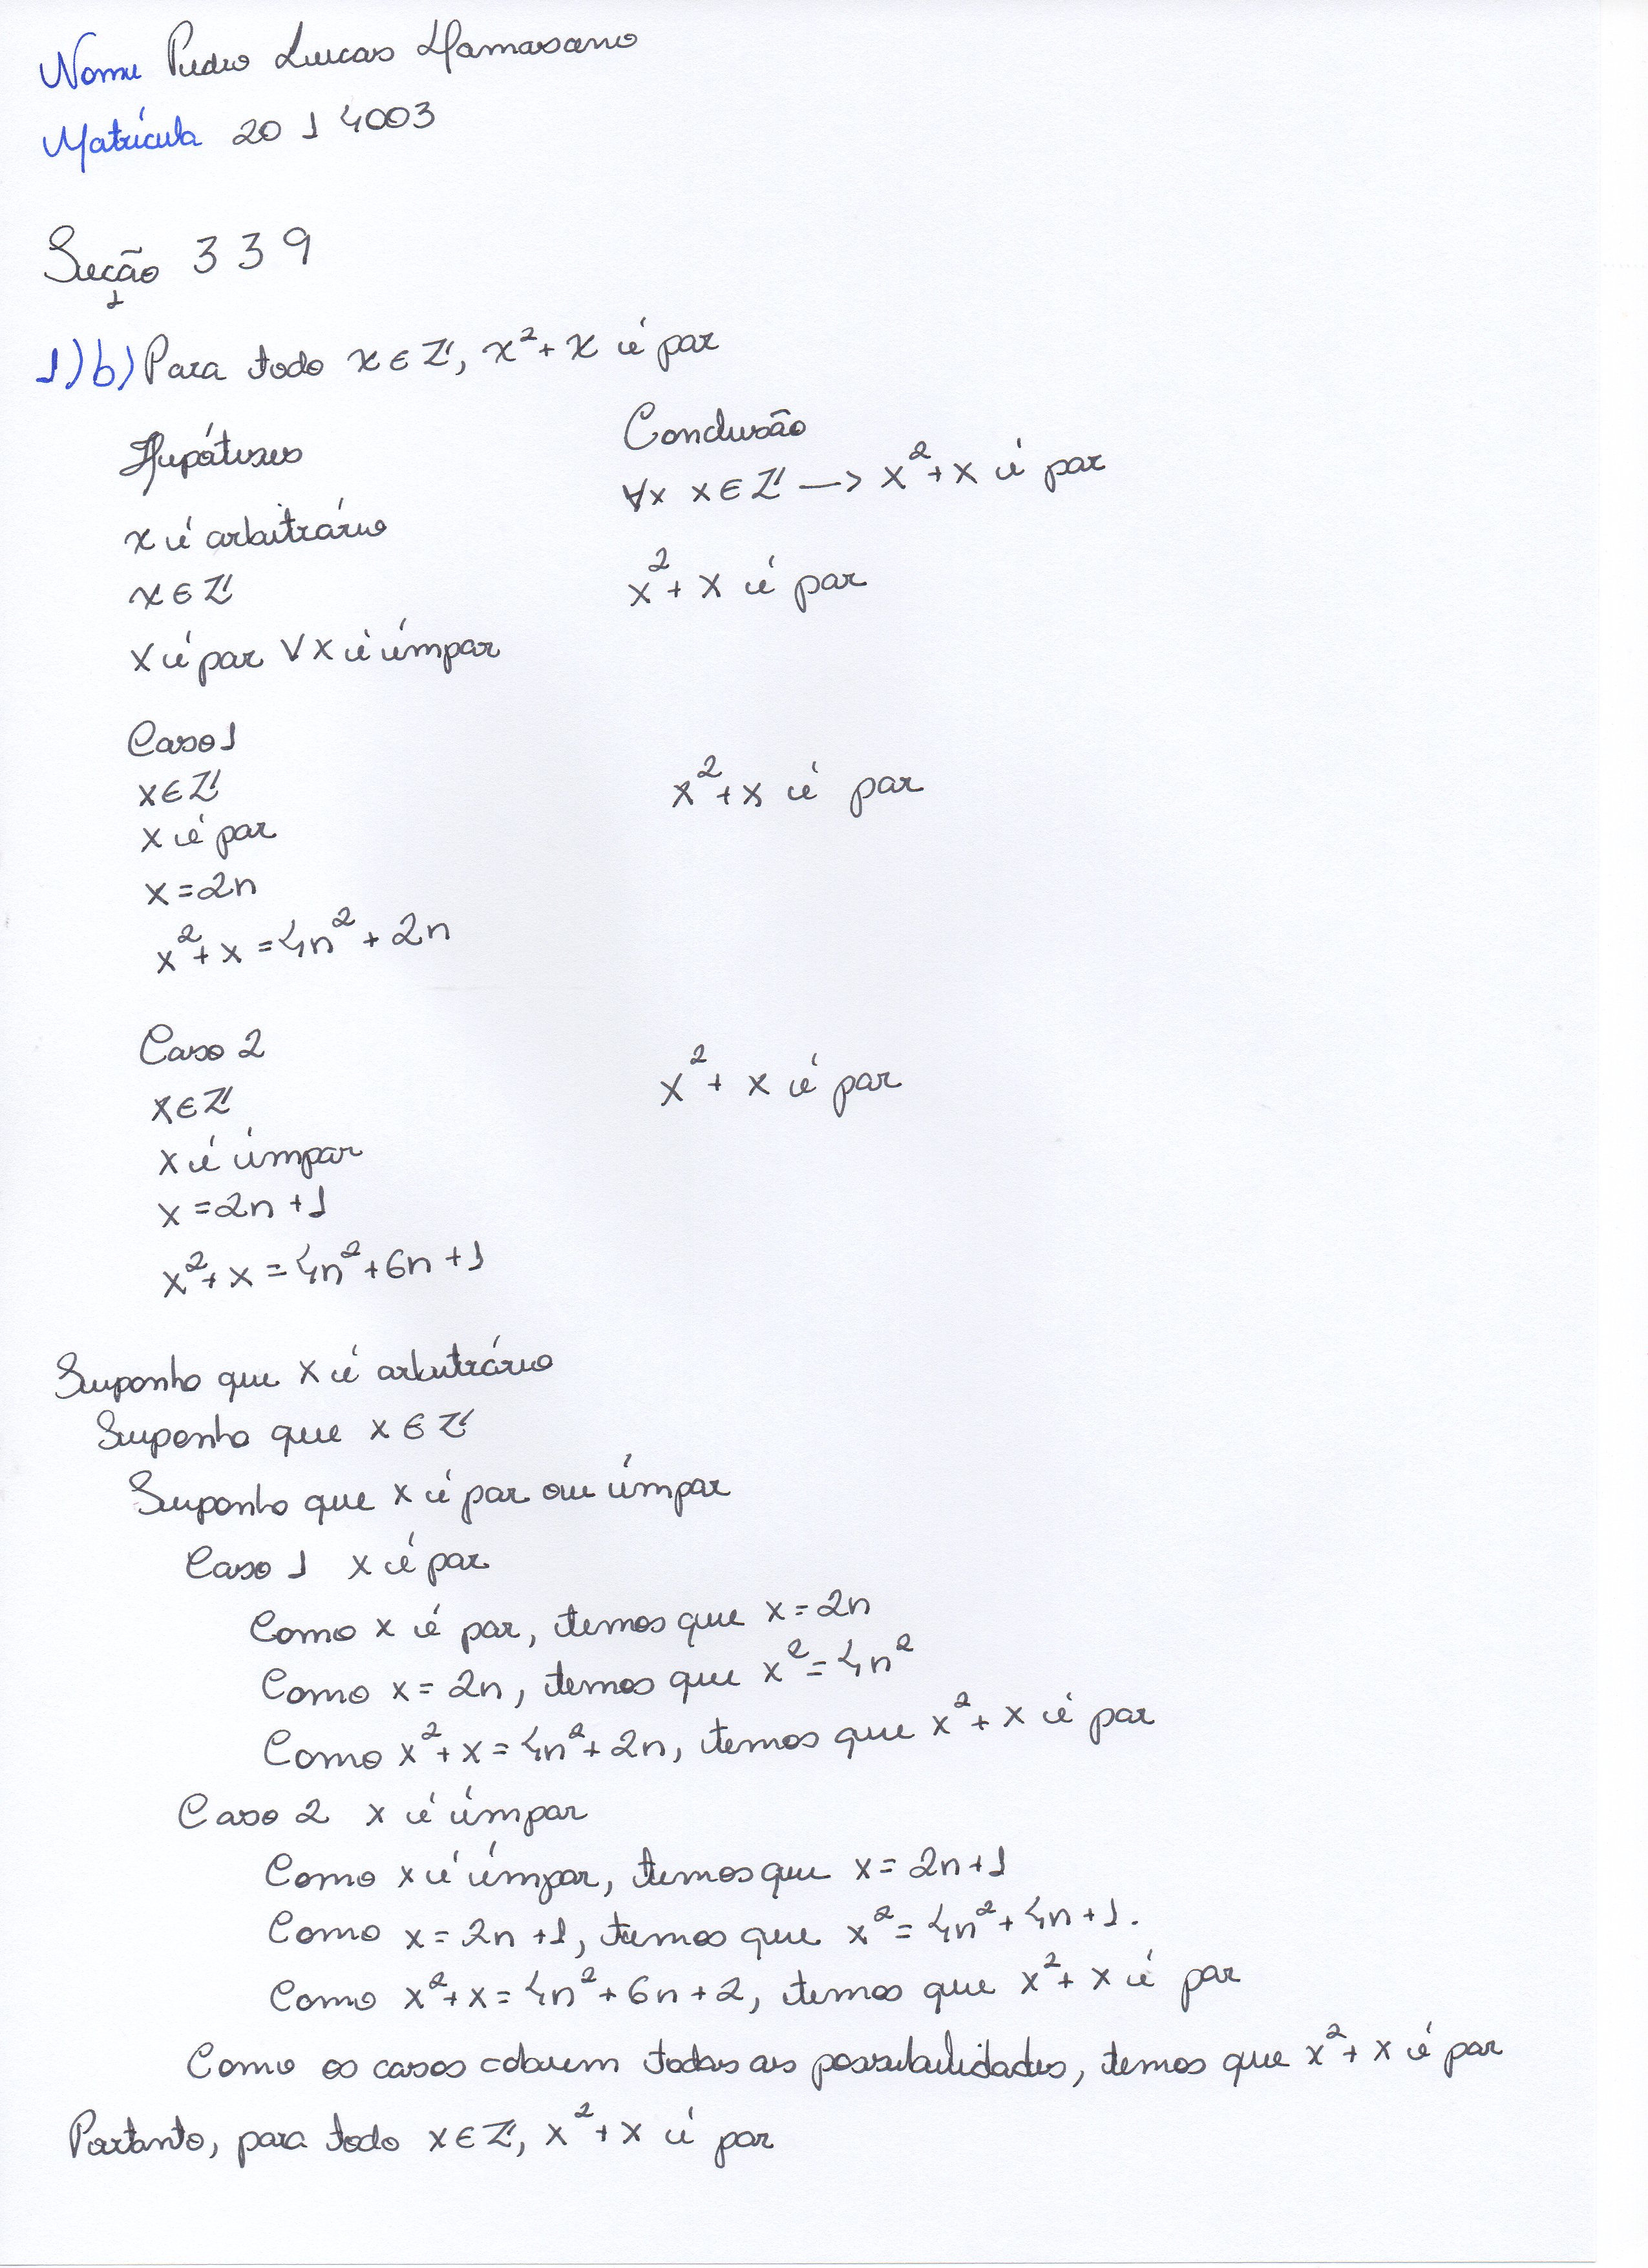 Nome Pedro Lucas Hamasano
Matrícula 20 1 4003
Seção 3 3 9
1)b) Para todo x ∈ Z, x² + x é par
Hipóteses
Conclusão
∀x x ∈ Z —> x² + x é par
x é arbitrário
x ∈ Z
x² + x é par
x é par ∨ x é ímpar
Caso 1
x ∈ Z
x² + x é par
x é par
x = 2n
x² + x = 4n² + 2n
Caso 2
x ∈ Z
x² + x é par
x é ímpar
x = 2n + 1
x² + x = 4n² + 6n + 1
Suponha que x é arbitrário
Suponha que x ∈ Z
Suponha que x é par ou ímpar
Caso 1 x é par
Como x é par, temos que x = 2n
Como x = 2n, temos que x² = 4n²
Como x² + x = 4n² + 2n, temos que x² + x é par
Caso 2 x é ímpar
Como x é ímpar, temos que x = 2n + 1
Como x = 2n + 1, temos que x² = 4n² + 4n + 1.
Como x² + x = 4n² + 6n + 2, temos que x² + x é par
Como os casos cobrem todas as possibilidades, temos que x² + x é par
Portanto, para todo x ∈ Z, x² + x é par